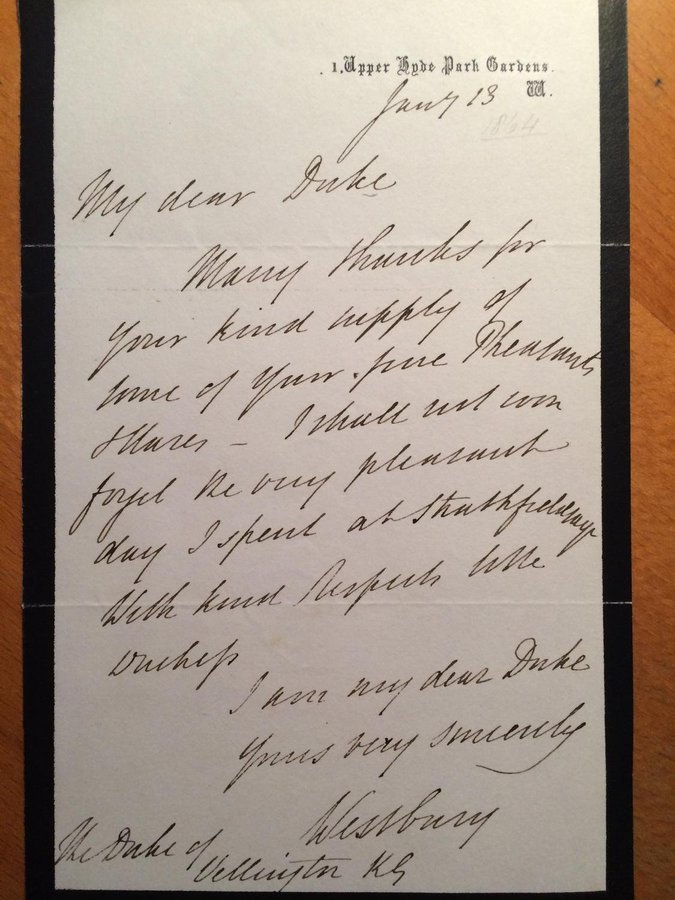 1, Upper Hyde Park Gardens.
W.
Jany 13
1864
My dear Duke
Many thanks for
your kind supply of
some of your fine Pheasants
& Hares – I shall not soon
forget the very pleasant
day I spent at Strathfieldsaye
With kind Respects to the
Duchess
I am my dear Duke
Yours very sincerely
Westbury
The Duke of
Wellington KG